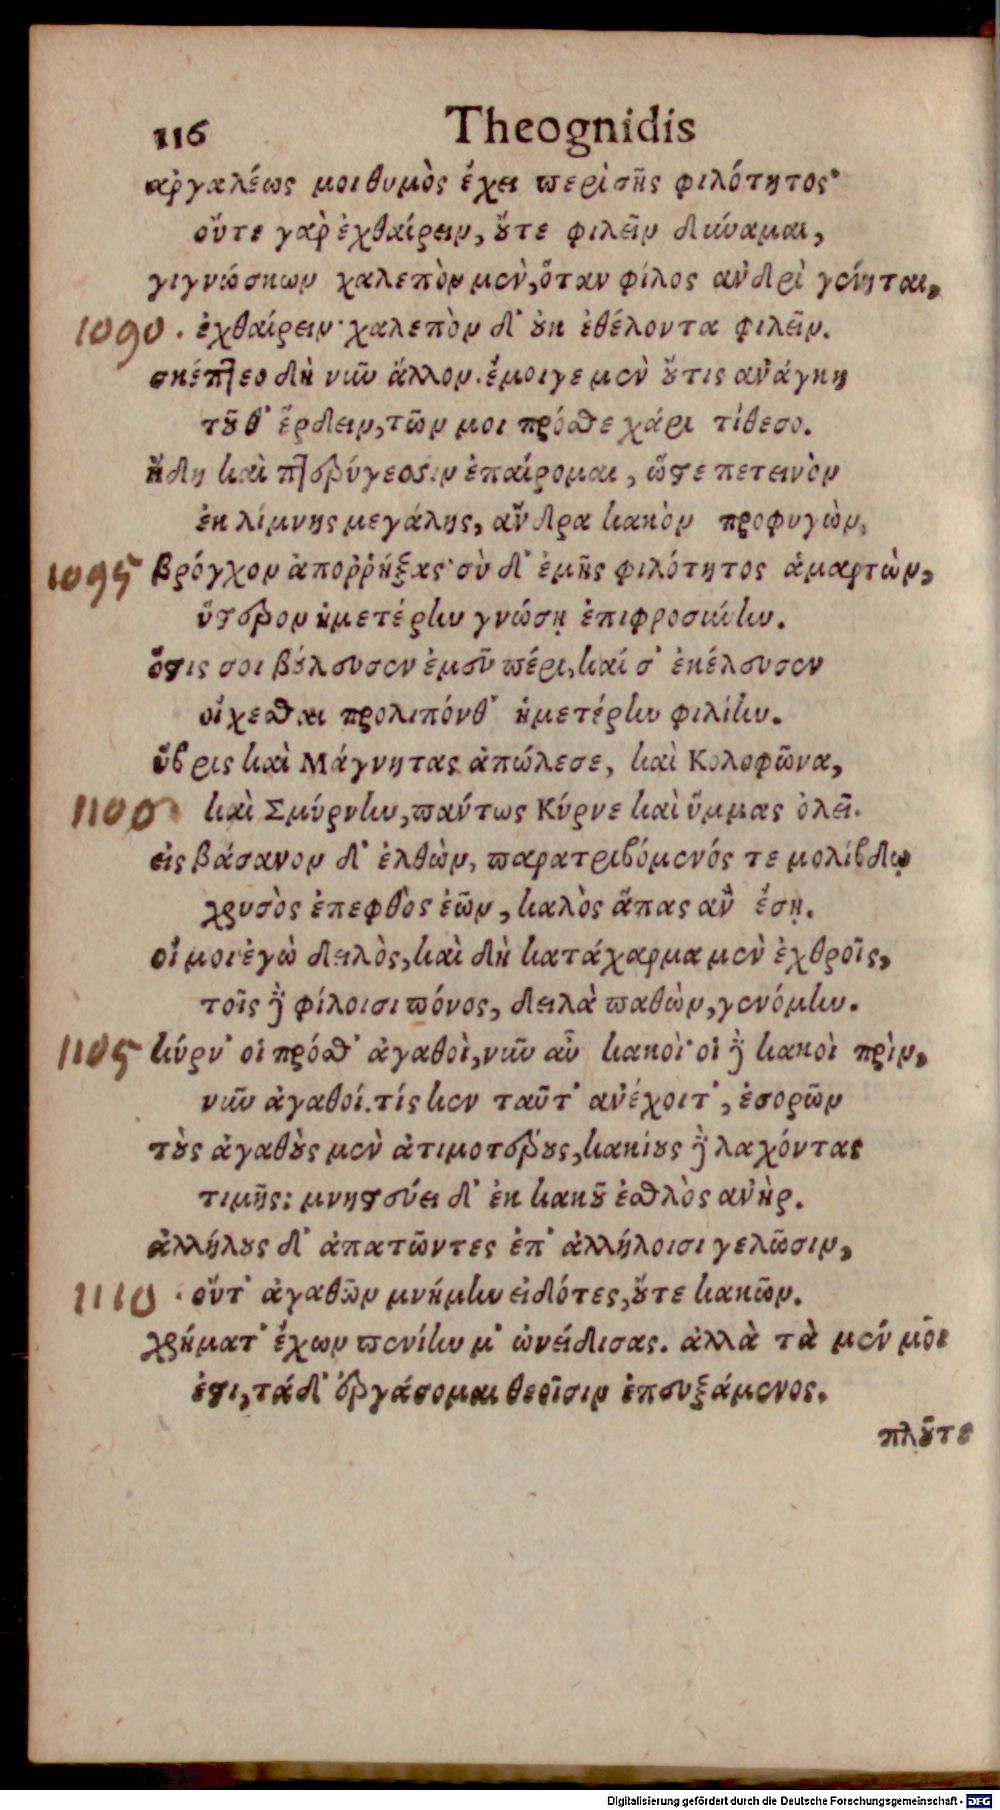 116 Theognidis
ἀργαλέως μοι θυμὸς ἔχει περὶ σῆς φιλότητος·
οὔτε γὰρ ἐχθαίρειν, οὔτε φιλεῖν δύναμαι,
γιγνώσκων χαλεπὸν μὲν, ὅταν φίλος ἀνδρὶ γένηται,
1090 . ἐχθαίρειν· χαλεπὸν δ' οὐκ ἐθέλοντα φιλεῖν.
σκέπτεο δὴ νῦν ἄλλον. ἔμοιγε μὲν οὔτις ἀνάγκη
τοῦθ' ἔρδειν, τῶν μοι πρόσθε χάρι τίθεσο.
ἤδη καὶ πτερύγεσσιν ἐπαίρομαι, ὥστε πετεινὸν
ἐκ λίμνης μεγάλης, ἄνδρα κακὸν προφυγὼν,
1095 βρόγχον ἀποῤῥήξας· σὺ δ' ἐμῆς φιλότητος ἁμαρτὼν,
ὕστερον ἡμετέρην γνώσῃ ἐπιφροσύνην.
ὅστις σοι βούλευσεν ἐμεῦ πέρι, καί σ' ἐκέλευσεν
οἴχεσθαι προλιπόνθ' ἡμετέρην φιλίην.
ὕβρις καὶ Μάγνητας ἀπώλεσε, καὶ Κολοφῶνα,
1100 καὶ Σμύρνην, πάντως Κύρνε καὶ ὔμμας ὀλεῖ.
εἰς βάσανον δ' ἐλθὼν, παρατριβόμενός τε μολίβδῳ
χρυσὸς ἐπεφθὸς ἐῶν, καλὸς ἅπας ἂν ἔσῃ.
οἴ μοι ἐγὼ δειλὸς, καὶ δὴ κατάχαρμα μὲν ἐχθροῖς,
τοῖς δὲ φίλοισι πόνος, δειλὰ παθὼν, γενόμην.
1105 κύρν' οἱ πρόσθ' ἀγαθοὶ, νῦν αὖ κακοὶ· οἱ δὲ κακοὶ πρὶν,
νῦν ἀγαθοί. τίς κεν ταῦτ' ἀνέχοιτ', ἐσορῶν
τοὺς ἀγαθοὺς μὲν ἀτιμοτέρους, κακίους δὲ λαχόντας
τιμῆς: μνηστεύει δ' ἐκ κακοῦ ἐσθλὸς ἀνὴρ.
ἀλλήλους δ' ἀπατῶντες ἐπ' ἀλλήλοισι γελῶσιν,
1110 . οὔτ' ἀγαθῶν μνήμην εἰδότες, οὔτε κακῶν.
χρήματ' ἔχων πενίην μ' ὠνείδισας. ἀλλὰ τὰ μέν μοι
ἐστι, τά δ' ἐργάσομαι θεοῖσιν ἐπευξάμενος.
πλοῦτε
Digitalisierung gefördert durch die Deutsche Forschungsgemeinschaft - DFG